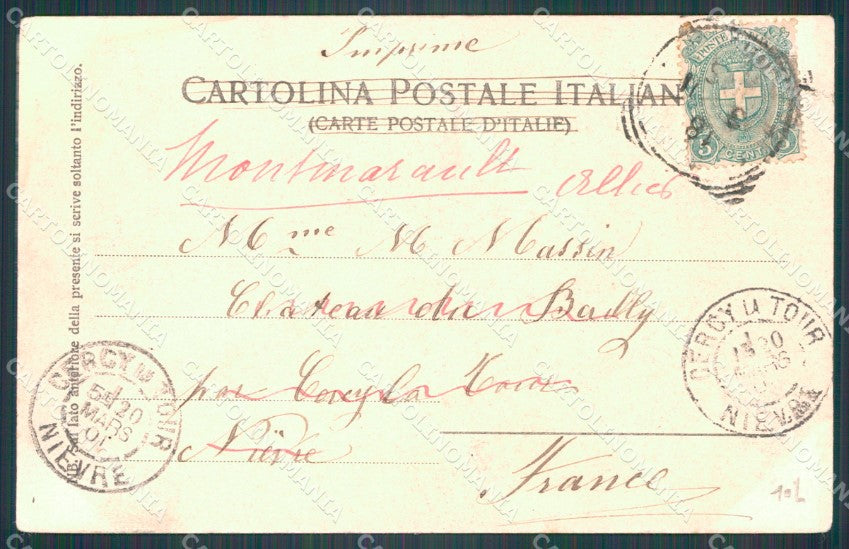 Imprimé
CARTOLINA POSTALE ITALIAN
(CARTE POSTALE D'ITALIE)
Montmarault Allier
Mme M Massin
Chateau du Bailly
par Cercy la Tour
Nièvre
France
NB. Sul lato anteriore della presente si scrive soltanto l'indirizzo.
POSTE
5 CENT 5
CERCY LA TOUR
5E 20
MARS
01
NIÈVRE
CERCY LA TOUR
20
MARS
10L
CARTOLINOMANIA